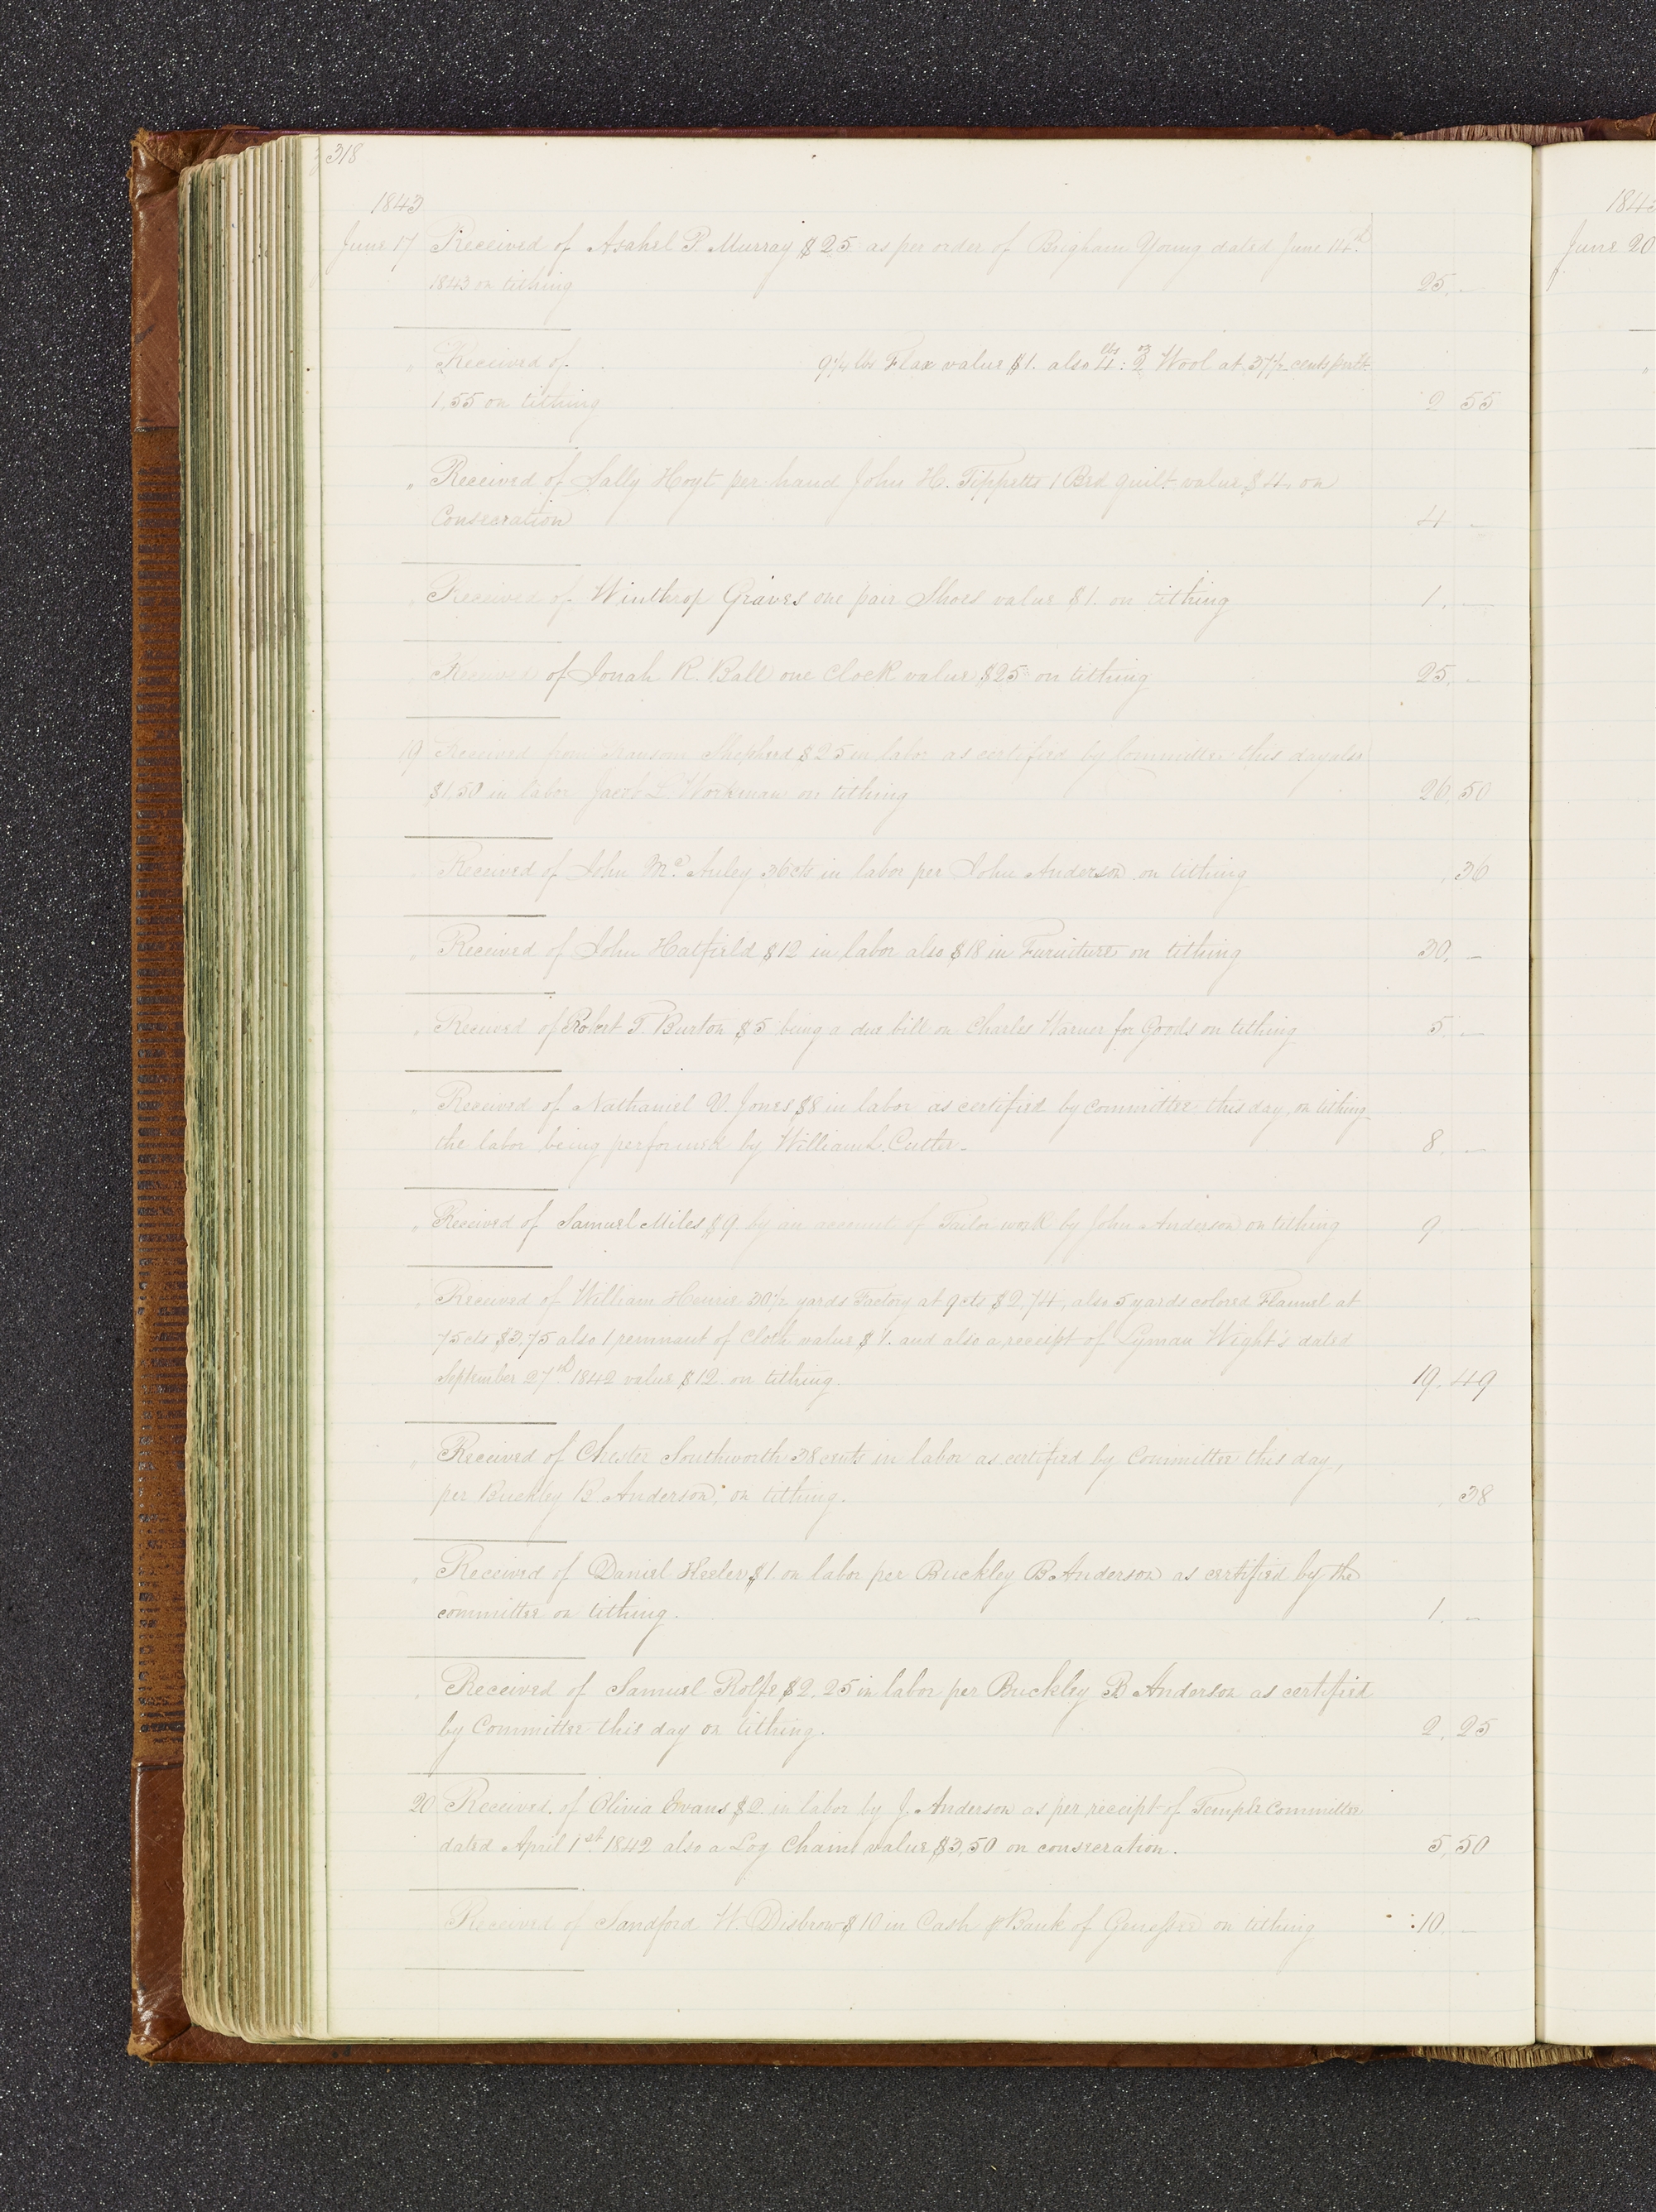 318
1843
June 17 Received of Asahel P. Murray $25 as per order of Brigham Young dated June 14th
1843 on tithing 25. –
" Received of 9 1/4 lbs Flax value $1. also 4 lbs : 2 oz Wool at 37 1/2 cents per lb
1,55 on tithing 2 55
" Received of Sally Hoyt per hand John H. Tippetts 1 Bed quilt value $4. on
Consecration 4 –
" Received of Winthrop Graves one pair Shoes value $1. on tithing 1. –
" Received of Jonah R. Ball one Clock value $25 on tithing 25. –
19 Received from Ransom Shepherd $25 in labor as certified by Committee this day also
$1,50 in labor Jacob L. Workman on tithing 26,50
" Received of John Mc. Auley 36 cts in labor per John Anderson on tithing ,36
" Received of John Hatfield $12 in labor also $18 in Furniture on tithing 30. –
" Received of Robert T. Burton $5 being a due bill on Charles Warner for Goods on tithing 5. –
" Received of Nathaniel V. Jones $8 in labor as certified by committee this day, on tithing
the labor being performed by William L. Cutler – 8. –
" Received of Samuel Miles $9. by an account of Tailor work by John Anderson on tithing 9 –
" Received of William Henrie 30 1/2 yards Factory at 9 cts $2,74, also 5 yards colored Flannel at
75 cts $3,75 also 1 remnant of Cloth value $1. and also a receipt of Lyman Wight's dated
September 27th 1842 value $12. on tithing. 19.49
" Received of Chester Southworth 38 cents in labor as certified by Committee this day,
per Buckley B. Anderson, on tithing. ,38
" Received of Daniel Keeler $1. on labor per Buckley B. Anderson as certified by the
committee on tithing. 1. –
" Received of Samuel Rolfe $2.25 in labor per Buckley B Anderson as certified
by Committee this day on tithing. 2,25
20 Received of Olivia Evans $2 in labor by J. Anderson as per receipt of Temple Committee
dated April 1st 1842 also a Log Chain value $3,50 on consecration. 5,50
Received of Sandford W. Disbrow $10 in Cash Bank of Genessee on tithing :10. –
1843
June 20
"